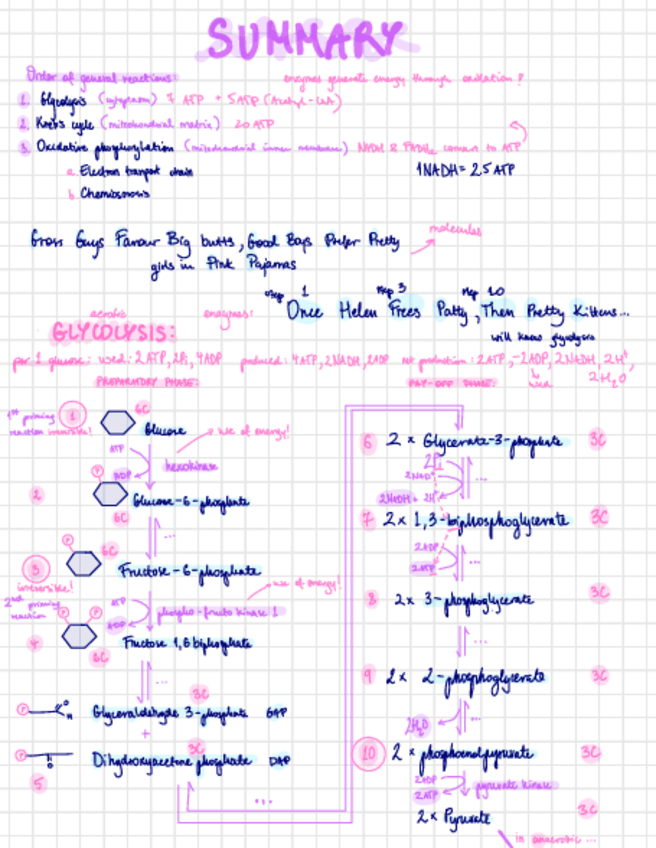 SUMMARY
Order of general reactions:
enzymes generate energy through oxidation!
1. Glycolysis (cytoplasm) 7 ATP + 5ATP (Acetyl-CoA)
2. Krebs cycle (mitochondrial matrix) 20 ATP
3. Oxidative phosphorylation (mitochondrial inner membrane) NADH & FADH2 convert to ATP
a. Electron tranport chain
1NADH = 2.5 ATP
b. Chemiosmosis
molecules
Gross Guys Favour Big butts, Good Boys Prefer Pretty
girls in Pink Pajamas
step 1 step 3 step 10
enzymes: Once Helen Frees Patty, Then Pretty Kittens...
will know glycolysis
aerobic
GLYCOLYSIS:
per 1 glucose: used: 2ATP, 2Pi, 4ADP produced: 4ATP, 2NADH, 2ADP net production: 2ATP, -2ADP, 2NADH, 2H+,
used 2H2O
PREPARATORY PHASE:
PAY-OFF PHASE:
1st priming reaction irreversible!
1
6C
Glucose
use of energy!
ATP
ADP
hexokinase
2
P
Glucose-6-phosphate
6C
...
3
irreversible!
2nd priming reaction
P
6C
Fructose-6-phosphate
use of energy!
ATP
ADP
phospho-fructo kinase 1
4
P P
Fructose 1,6 biphosphate
6C
...
3C
P
Glyceraldehyde 3-phosphate GAP
+
3C
P
Dihydroxyacetone phosphate DAP
5
...
6 2 x Glycerate-3-phosphate 3C
2Pi
2NAD+
2NADH + 2H+
...
7 2 x 1,3-biphosphoglycerate 3C
2ADP
2ATP
...
8 2x 3-phosphoglycerate 3C
...
9 2x 2-phosphoglycerate 3C
2H2O
...
10 2 x phosphoenolpyruvate 3C
2ADP
2ATP
pyruvate kinase
2x Pyruvate 3C
in anaerobic ...